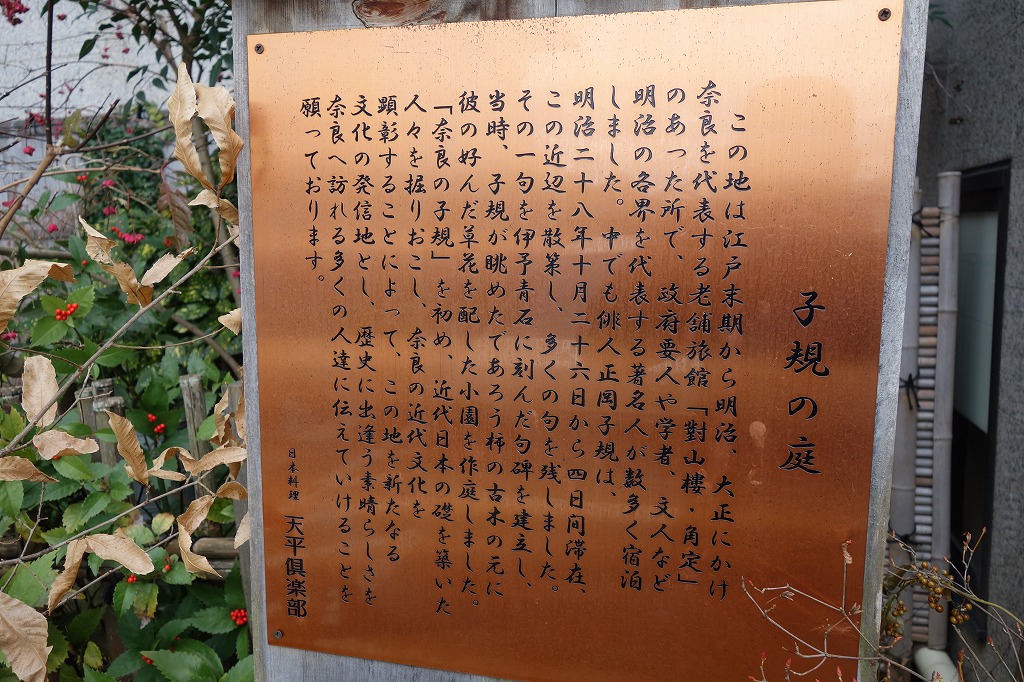 子規の庭
この地は江戸末期から明治、大正にかけ
奈良を代表する老舗旅館「對山樓・角定」
のあった所で、政府要人や学者、文人など
明治の各界を代表する著名人が数多く宿泊
しました。中でも俳人正岡子規は、
明治二十八年十月二十六日から四日間滞在、
この近辺を散策し、多くの句を残しました。
その一句を伊予青石に刻んだ句碑を建立し、
当時、子規が眺めたであろう柿の古木の元に
彼の好んだ草花を配した小園を作庭しました。
「奈良の子規」を初め、近代日本の礎を築いた
人々を掘りおこし、奈良の近代文化を
顕彰することによって、この地を新たなる
文化の発信地とし、歴史に出逢う素晴らしさを
奈良へ訪れる多くの人達に伝えていけることを
願っております。
日本料理 天平倶楽部